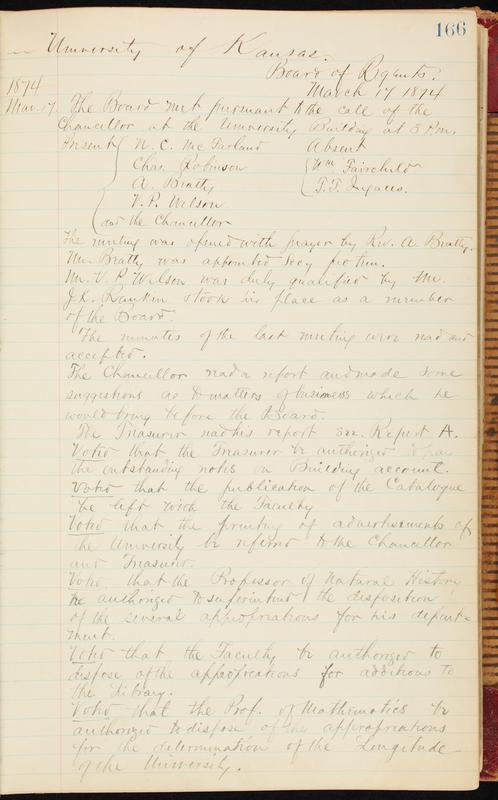 166
University of Kansas.
Board of Regents.
1874 March 17 1874
Mar. 17. The Board met pursuant to the call of the
Chancellor at the University Building at 3 P.m.
Present N. C. McFarland Absent
Chas. Robinson Wm Fairchild
A. Beatty F.T. Ingalls.
V. P. Wilson
and the Chancellor
The meeting was opened with prayer by Rev. A Beatty.
Mr. Beatty was appointed Secy pro tem.
Mr. V. P. Wilson was duly qualified by Mr.
J.K. Rankin & took his place as a member
of the Board.
The minutes of the last meeting were read and
accepted.
The Chancellor read a report and made some
suggestions as to matters of business which he
would bring before the Board.
The Treasurer read his report See. Report A.
Voted that the Treasurer be authorized to pay
the outstanding notes on Building account.
Voted that the publication of the Catalogue
be left with the Faculty
Voted that the printing of advertisements of
the University be referred to the Chancellor
and Treasurer.
Voted, that the Professor of Natural History
be authorized to superintend the disposition
of the several appropriations for his depart-
ment.
Voted that the Faculty be authorized to
dispose of the appropriations for additions to
the Library.
Voted that the Prof. of Mathematics be
authorized to dispose of the appropriations
for the determination of the Longitude
of the University.